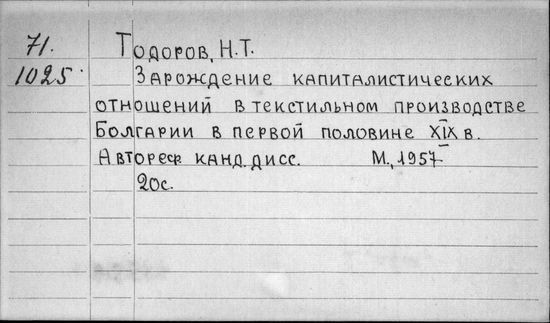 71. Тодоров, Н.Т.
1025. Зарождение капиталистических
отношений в текстильном производстве
Болгарии в первой половине XIX в.
Автореф канд. дисс. М., 1957
20с.